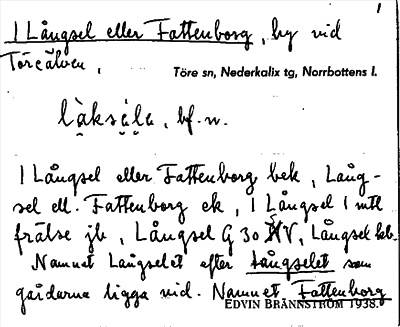 1
1 Långsel eller Fattenborg, by vid
Töreälven,
Töre sn, Nederkalix tg, Norrbottens l.
bf. n.
1 Långsel eller Fattenborg bek, Lång-
sel ell. Fattenborg ek, 1 Långsel 1 mtl
frälse jb, Långsel G 30 NV, Långsel
Namnet Långselet efter Långselet som
gårdarna ligga vid. Namnet Fattenborg
EDVIN BRÄNNSTRÖM 1938.